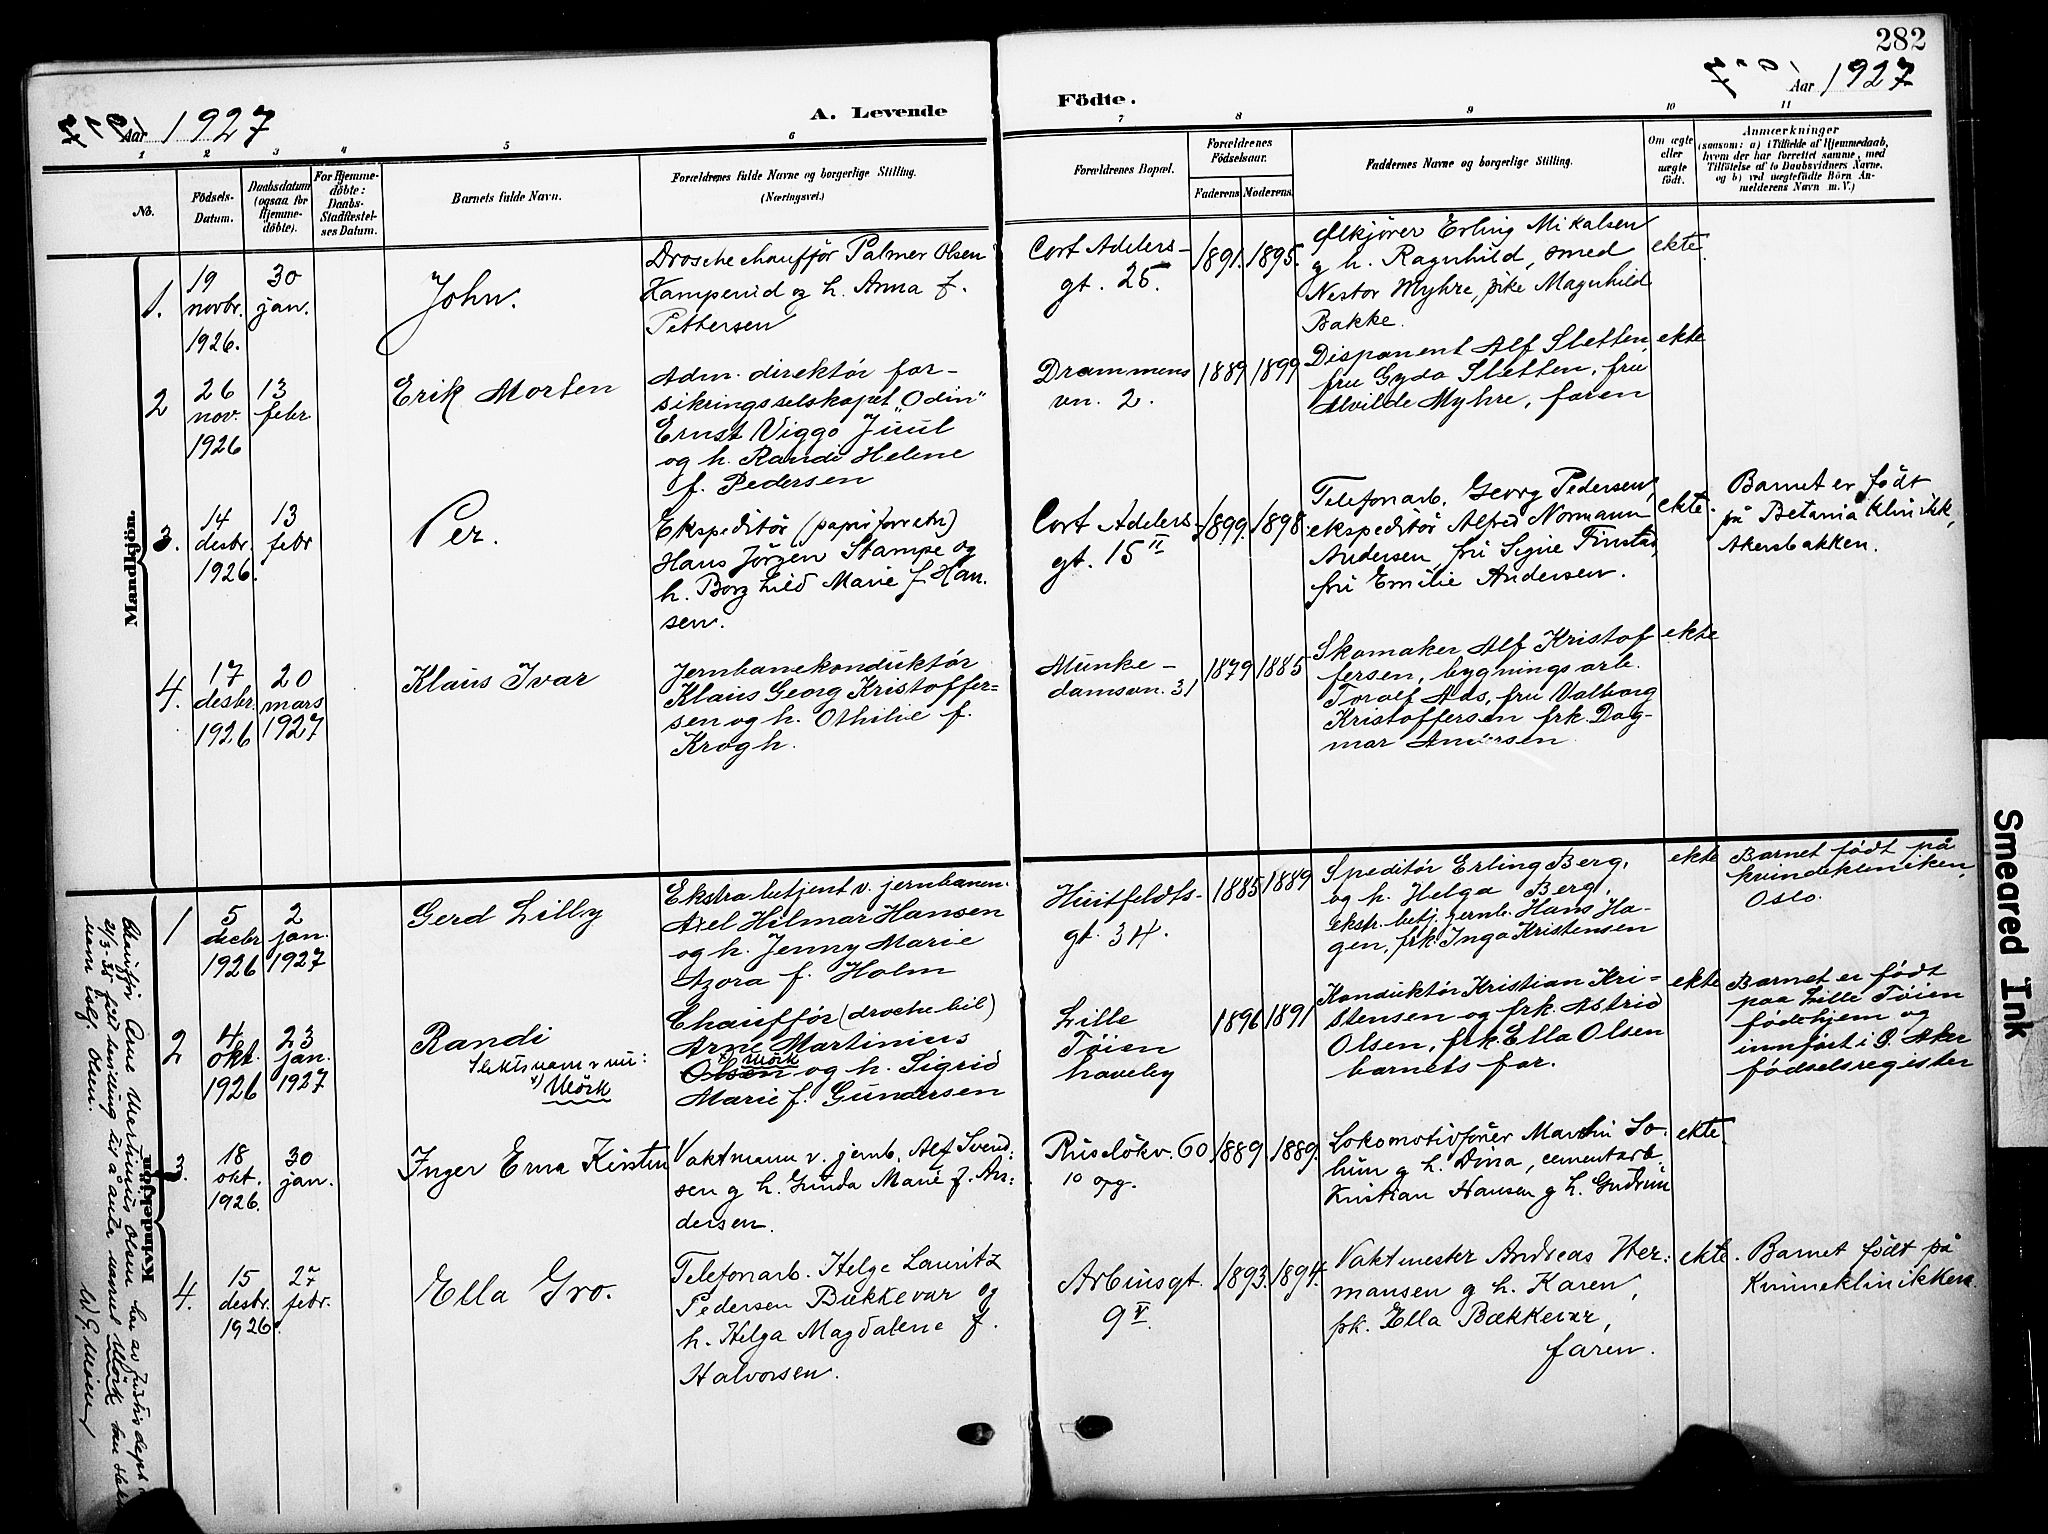 282
Aar 1927
A. Levende
Födte.
Aar 1927
1 2 3 4 5 6 7 8 9 10 11
No.
Födsels-
Datum.
Daabsdatum
(ogsaa for
Hjemme-
döbte).
For Hjemme-
döbte:
Daabs-
Stadfæstel-
ses Datum.
Barnets fulde Navn.
Forældrenes fulde Navne og borgerlige Stilling.
(Næringsvei.)
Forældrenes Bopæl.
Forældrenes
Födselsaar.
Faderens. Moderens.
Faddernes Navne og borgerlige Stilling.
Om ægte
eller
uægte
födt.
Anmærkninger
(saasom: a) i Tilfælde af Hjemmedaab,
hvem der har forrettet samme, med
Tilföielse af to Daabsvidners Navne,
og b) ved uægtefödte Börn An-
melderens Navn m. V.)
Mandkjøn.
1.
19
novbr.
1926.
30
jan.
John.
Droschechauffør Palmer Olsen
Kamperud og h. Anna f.
Pettersen
Cort Adelers-
gt. 25.
1891. 1895.
Ølkjører Erling Mikalsen
g h. Ragnhild, smed
Nestor Myhre, pike Magnhild
Bakke.
ekte.
2
26
nov.
1926
13
febr
Erik Morten
Adm. direktør for-
sikringsselskapet "Odin"
Ernst Viggo Juul
og h. Randi Helene
f. Pedersen
Drammens
vn. 2.
1889 1899
Disponent Alf Sletten,
fru Gyda Sletten, fru
Alvilde Myhre, faren
ekte
3.
14
desbr.
1926.
13
febr
Per.
Ekspeditør (papirforretn)
Hans Jörgen Stampe og
h. Borghild Marie f. Han-
sen.
Cort Adelers-
gt. 15 II
1899. 1898.
Telefonarb. Georg Pedersen,
ekspeditör Alfred Normann
Andersen, fru Signe Finstad,
fru Emilie Andersen.
ekte.
Barnet er født
på Betania klinikk,
Akersbakken.
4.
17
desbr.
1926
20
mars
1927
Klaus Ivar
Jernbanekonduktør
Klaus Georg Kristoffer-
sen og h. Othilie f.
Krogh.
Munke-
damsvn. 31
1879 1885
Skomaker Alf Kristof
fersen, bygningsarb.
Toralf Aas, fru Valborg
Kristoffersen frk. Dag-
mar Andersen
ekte
Kvindekjøn.
1
5
decbr
1926
2
jan.
1927
Gerd Lilly
Ekstrabetjent v. jernbanen.
Axel Hilmar Hansen
og h. Jenny Marie
Azora f. Holm
Huitfeldts-
gt. 34.
1885 1889
Speditør Erling Berg,
og h. Helga Berg,
ekstr. betj. jernb. Hans Ha-
gen, frk Inga Kristensen
ekte
Barnet født på
kvindekliniken,
Oslo.
2
4
okt.
1926
23
jan.
1927
Randi
Slektsnavn er nu:
x) Mörk
Chauffør (drochebil)
Arne Martinius
x) Mörk
Olsen og h. Sigrid
Marie f. Gundersen
Lille
Tøien
haveby
1896 1891
Konduktør Kristian Kri-
stensen og frk. Astrid
Olsen, frk. Ella Olsen
barnets far.
ekte
Barnet er født
paa Lille Tøien
fødehjem og
innført i Ø. Aker
fødselsregister
3.
18
okt.
1926.
30
jan.
Inger Erna Kirsten
Vaktmann v. jernb. Alf Svend-
sen g h. Gunda Marie f. An-
dersen.
Ruseløkv. 60
10 opg.
1889 1889.
Lokomotivfører Martin So-
lum g h. Dina, cementarb.
Kristian Hansen g h. Gudrun
ekte.
4.
15
desbr.
1926.
27
febr.
Ella Gro.
Telefonarb. Helge Lauritz
Pedersen Bækkevar og
h. Helga Magdalene f.
Halvorsen.
Arbinsgt.
9 V.
1893. 1894.
Vaktmester Andreas Her-
mansen g h. Karen,
frk. Ella Bækkevar,
faren.
ekte.
Barnet født på
Kvinneklinikken.
Chauffør Arne Martinius Olsen har av Justisdept.
21/3-35 fått bevilling til å anta navnet Mörk
navn Olsen.
Smeared Ink